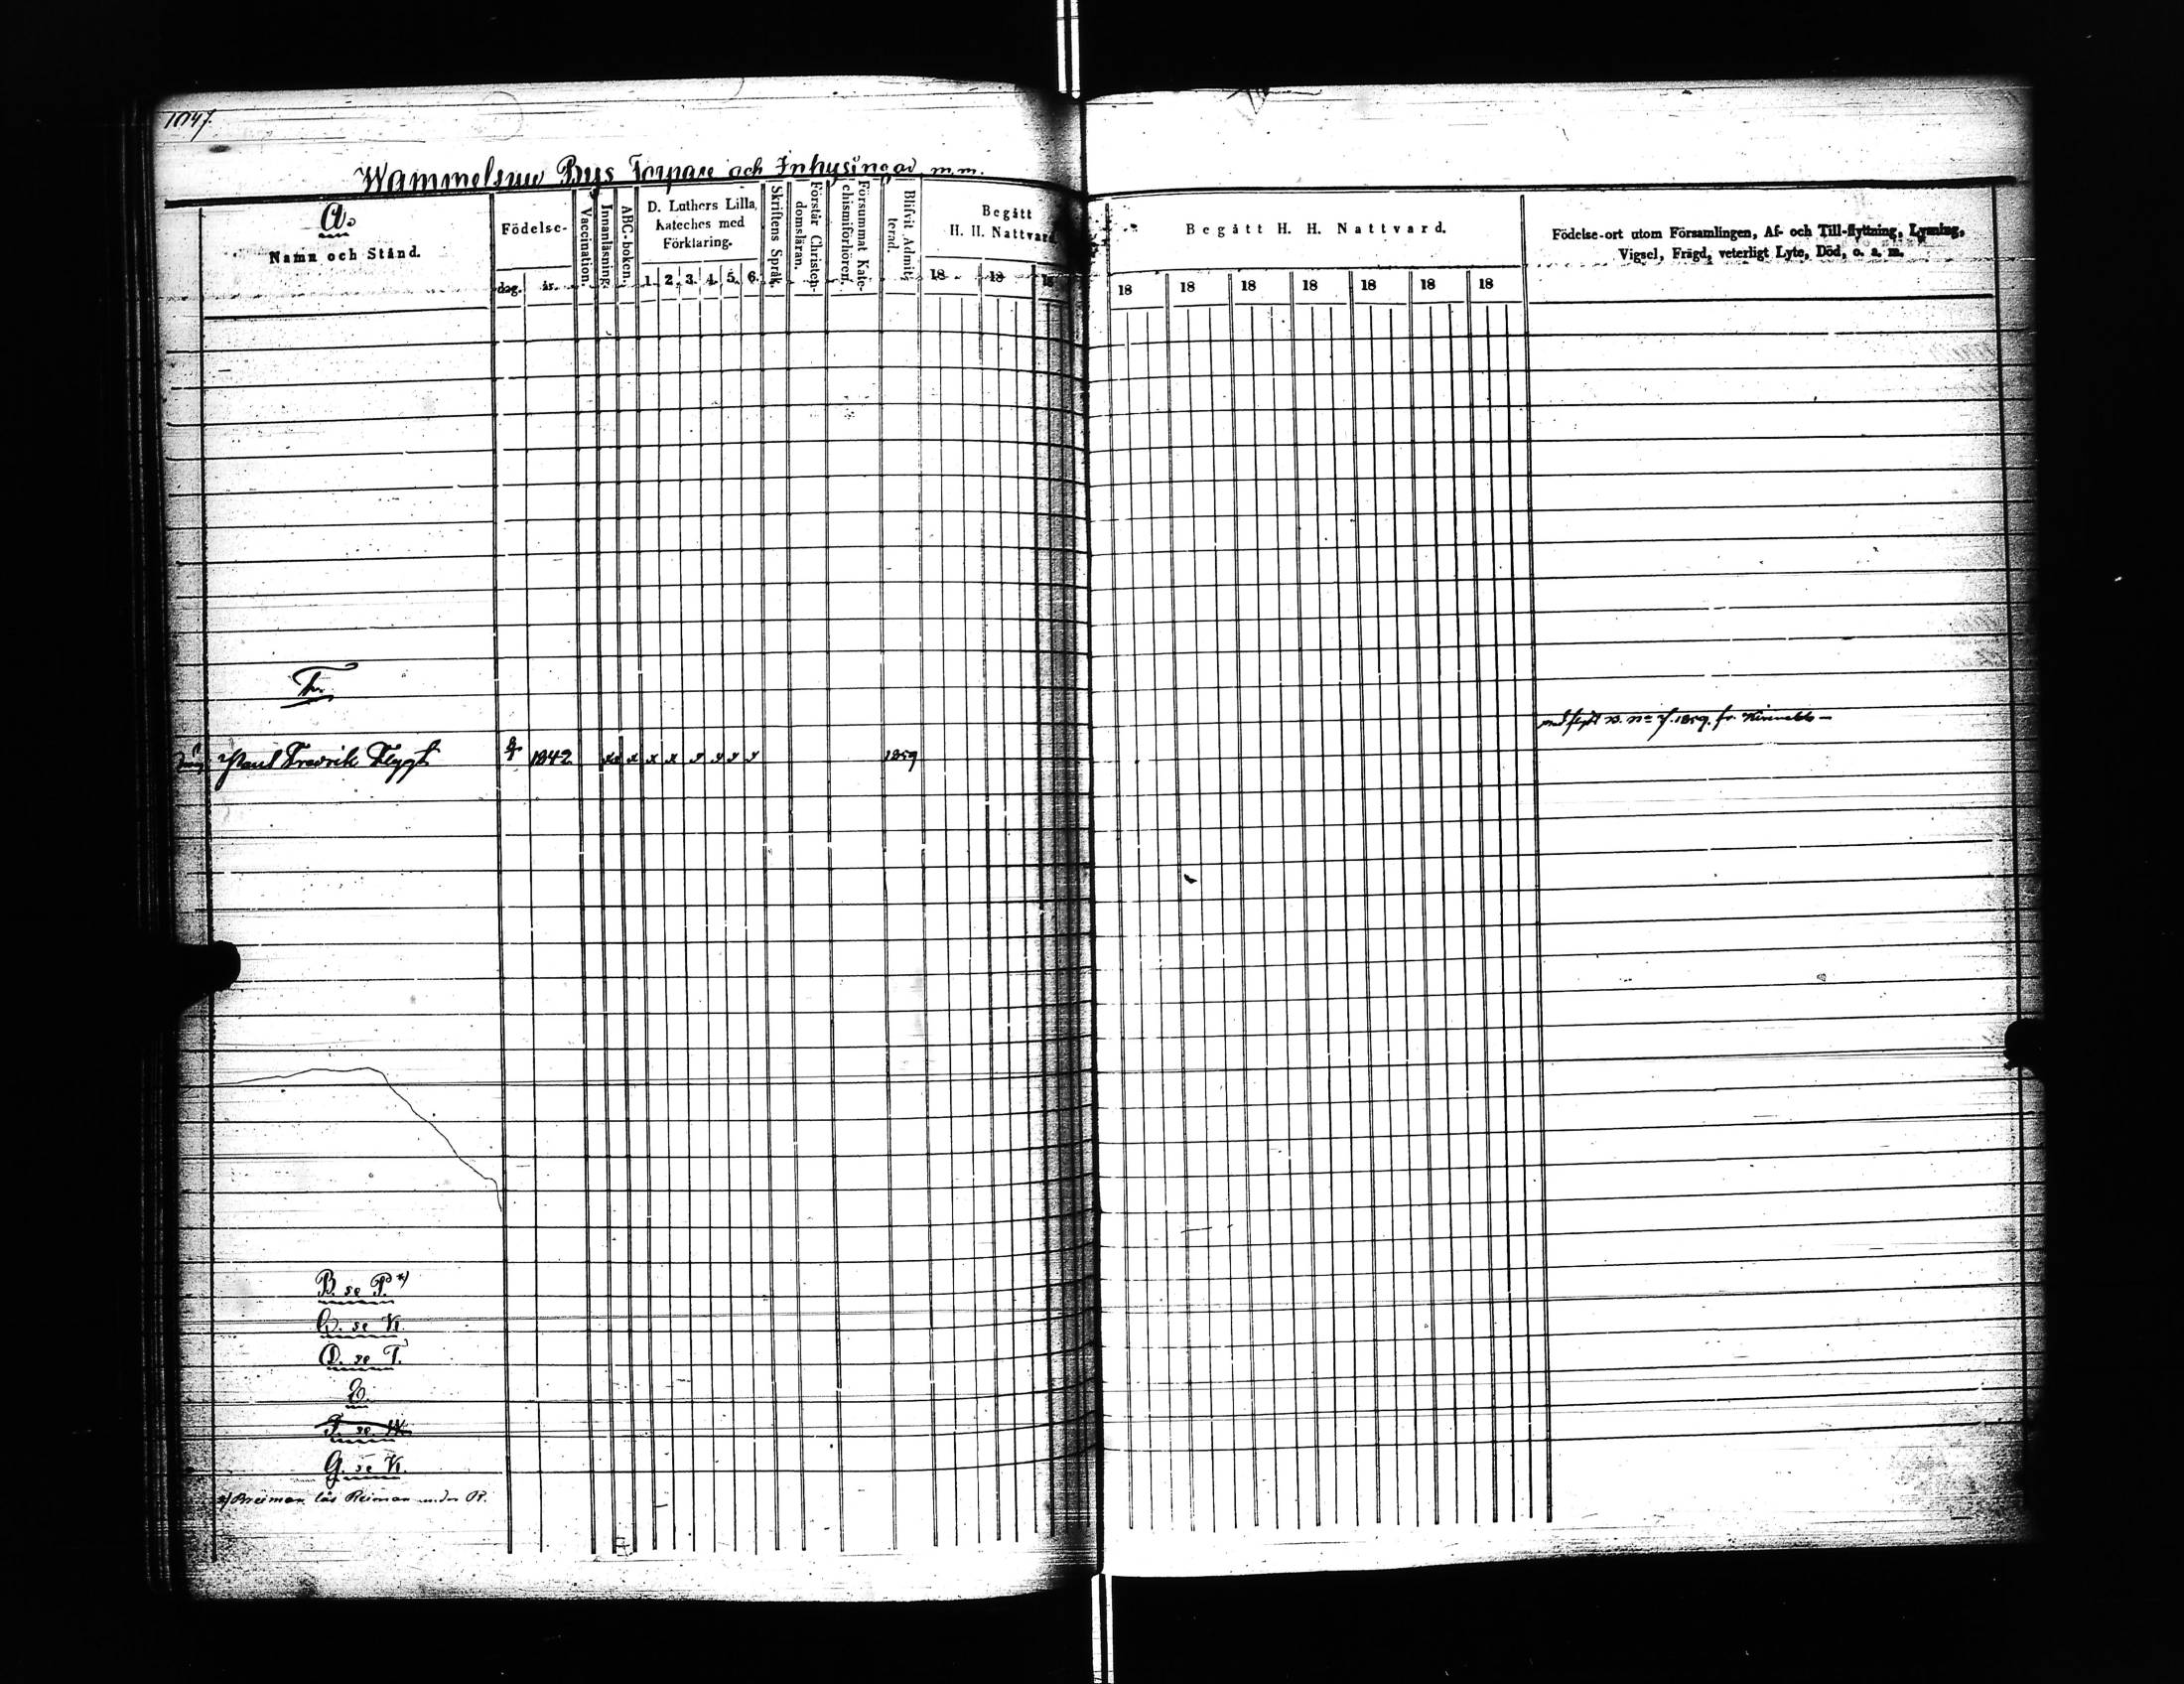 1047.
Wammelsuu Bys Torpare och Inhysingar m.m.
A.
Namn och Stånd.
Födelse-
dag. år.
Vaccination.
Innanläsning.
ABC-boken.
D. Luthers Lilla Kateches med Förklaring.
1. 2. 3. 4. 5. 6.
Skriftens Språk.
Förstår Christendomsläran.
Försummat Katechismiförhören.
Blifvit Admitterad.
Begått H. H. Nattvard.
18 18 18
Begått H. H. Nattvard.
18 18 18 18 18 18 18
Födelse-ort utom Församlingen, Af- och Till-flyttning, Lysning,
Vigsel, Frägd, veterligt Lyte, Död, o. s. m.
1859. fr.
Paul Fredrik Flygt 1842 x x x x 1859
B. se P. *)
C. se K.
D. se T.
E.
G. se K.
*) Breiman läs Reiman under R.